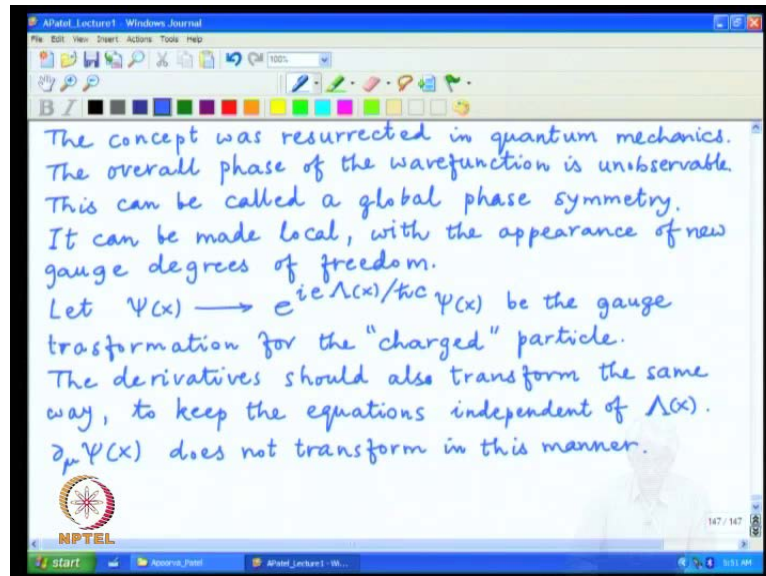 APatel_Lecture1 - Windows Journal
File Edit View Insert Actions Tools Help
100%
B I
The concept was resurrected in quantum mechanics.
The overall phase of the wavefunction is unobservable.
This can be called a global phase symmetry.
It can be made local, with the appearance of new
gauge degrees of freedom.
Let Ψ(x) ⟶ e^{ieΛ(x)/ħc} Ψ(x) be the gauge
trasformation for the "charged" particle.
The derivatives should also transform the same
way, to keep the equations independent of Λ(x).
∂_μ Ψ(x) does not transform in this manner.
NPTEL
147 / 147
start Apoorva_Patel APatel_Lecture1 - Wi... 3:51 AM